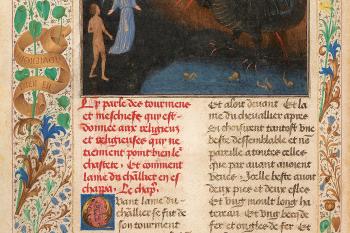 Cy parle des tourmens
et meschiefz qui est
donnee aux religieux
et religieuses qui ne
tiennent point bien le
chastete, Et comment
lame du chlier en es
chappa, Le chap
Quant lame du
chlier se fut de
son tourment
Et aloit devant Et la
me du chevallier apres
Et choisirent tantost une
beste dessemblable et no
pareille a toutes celles
que par avant avoient
veues, Icelle beste avoit
deux piez et deux esles
Et ung moult long ha
terau, Et ung becq de
fer et ongles de fer, Et